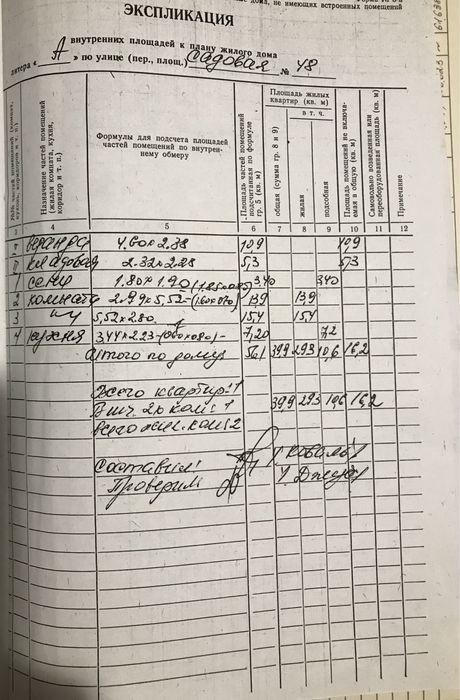 не имеющих встроенных помещений
ЭКСПЛИКАЦИЯ
внутренних площадей к плану жилого дома
литера « А » по улице (пер., площ.) Садовая № 48
Назначение частей помещений (жилая комната, кухня, коридор и т. п.)
Формулы для подсчета площадей частей помещений по внутреннему обмеру
Площадь частей помещений подсчитанная по формуле гр. 5 (кв. м)
Площадь жилых квартир (кв. м)
общая (сумма гр. 8 и 9)
в т. ч.
жилая
подсобная
Площадь помещений не включаемая в общую (кв. м)
Самовольно возведенная или переоборудованная площадь (кв. м)
Примечание
3 4 5 6 7 8 9 10 11 12
веранда 4.60х2.38 10,9 10,9
кладовая 2.32х2.28 5,3 5,3
1 сени 1.80х1.90 3,40 3,40
2 комната 2.99х5,52 13,9 13,9
3 5,52х2.80 15,4 15,4
4 кухня 3.44х2.23 7,20 7,2
Итого по дому 56,1 39,9 29,3 10,6 16,2
Всего квартир: 1
В т.ч. 2х комн: 1 39,9 29,3 10,6 16,2
Всего жил. комн: 2
Составил:
Проверил